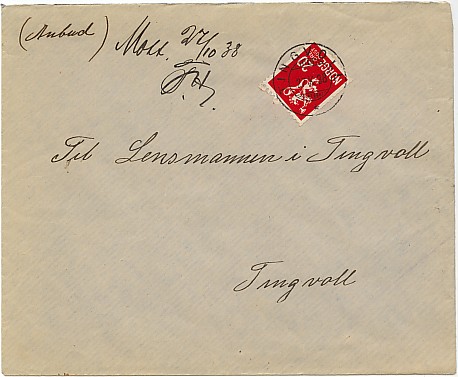 (Anbud) Mott. 27/10 38
NORGE
20
Til Lensmannen i Tingvoll
Tingvoll